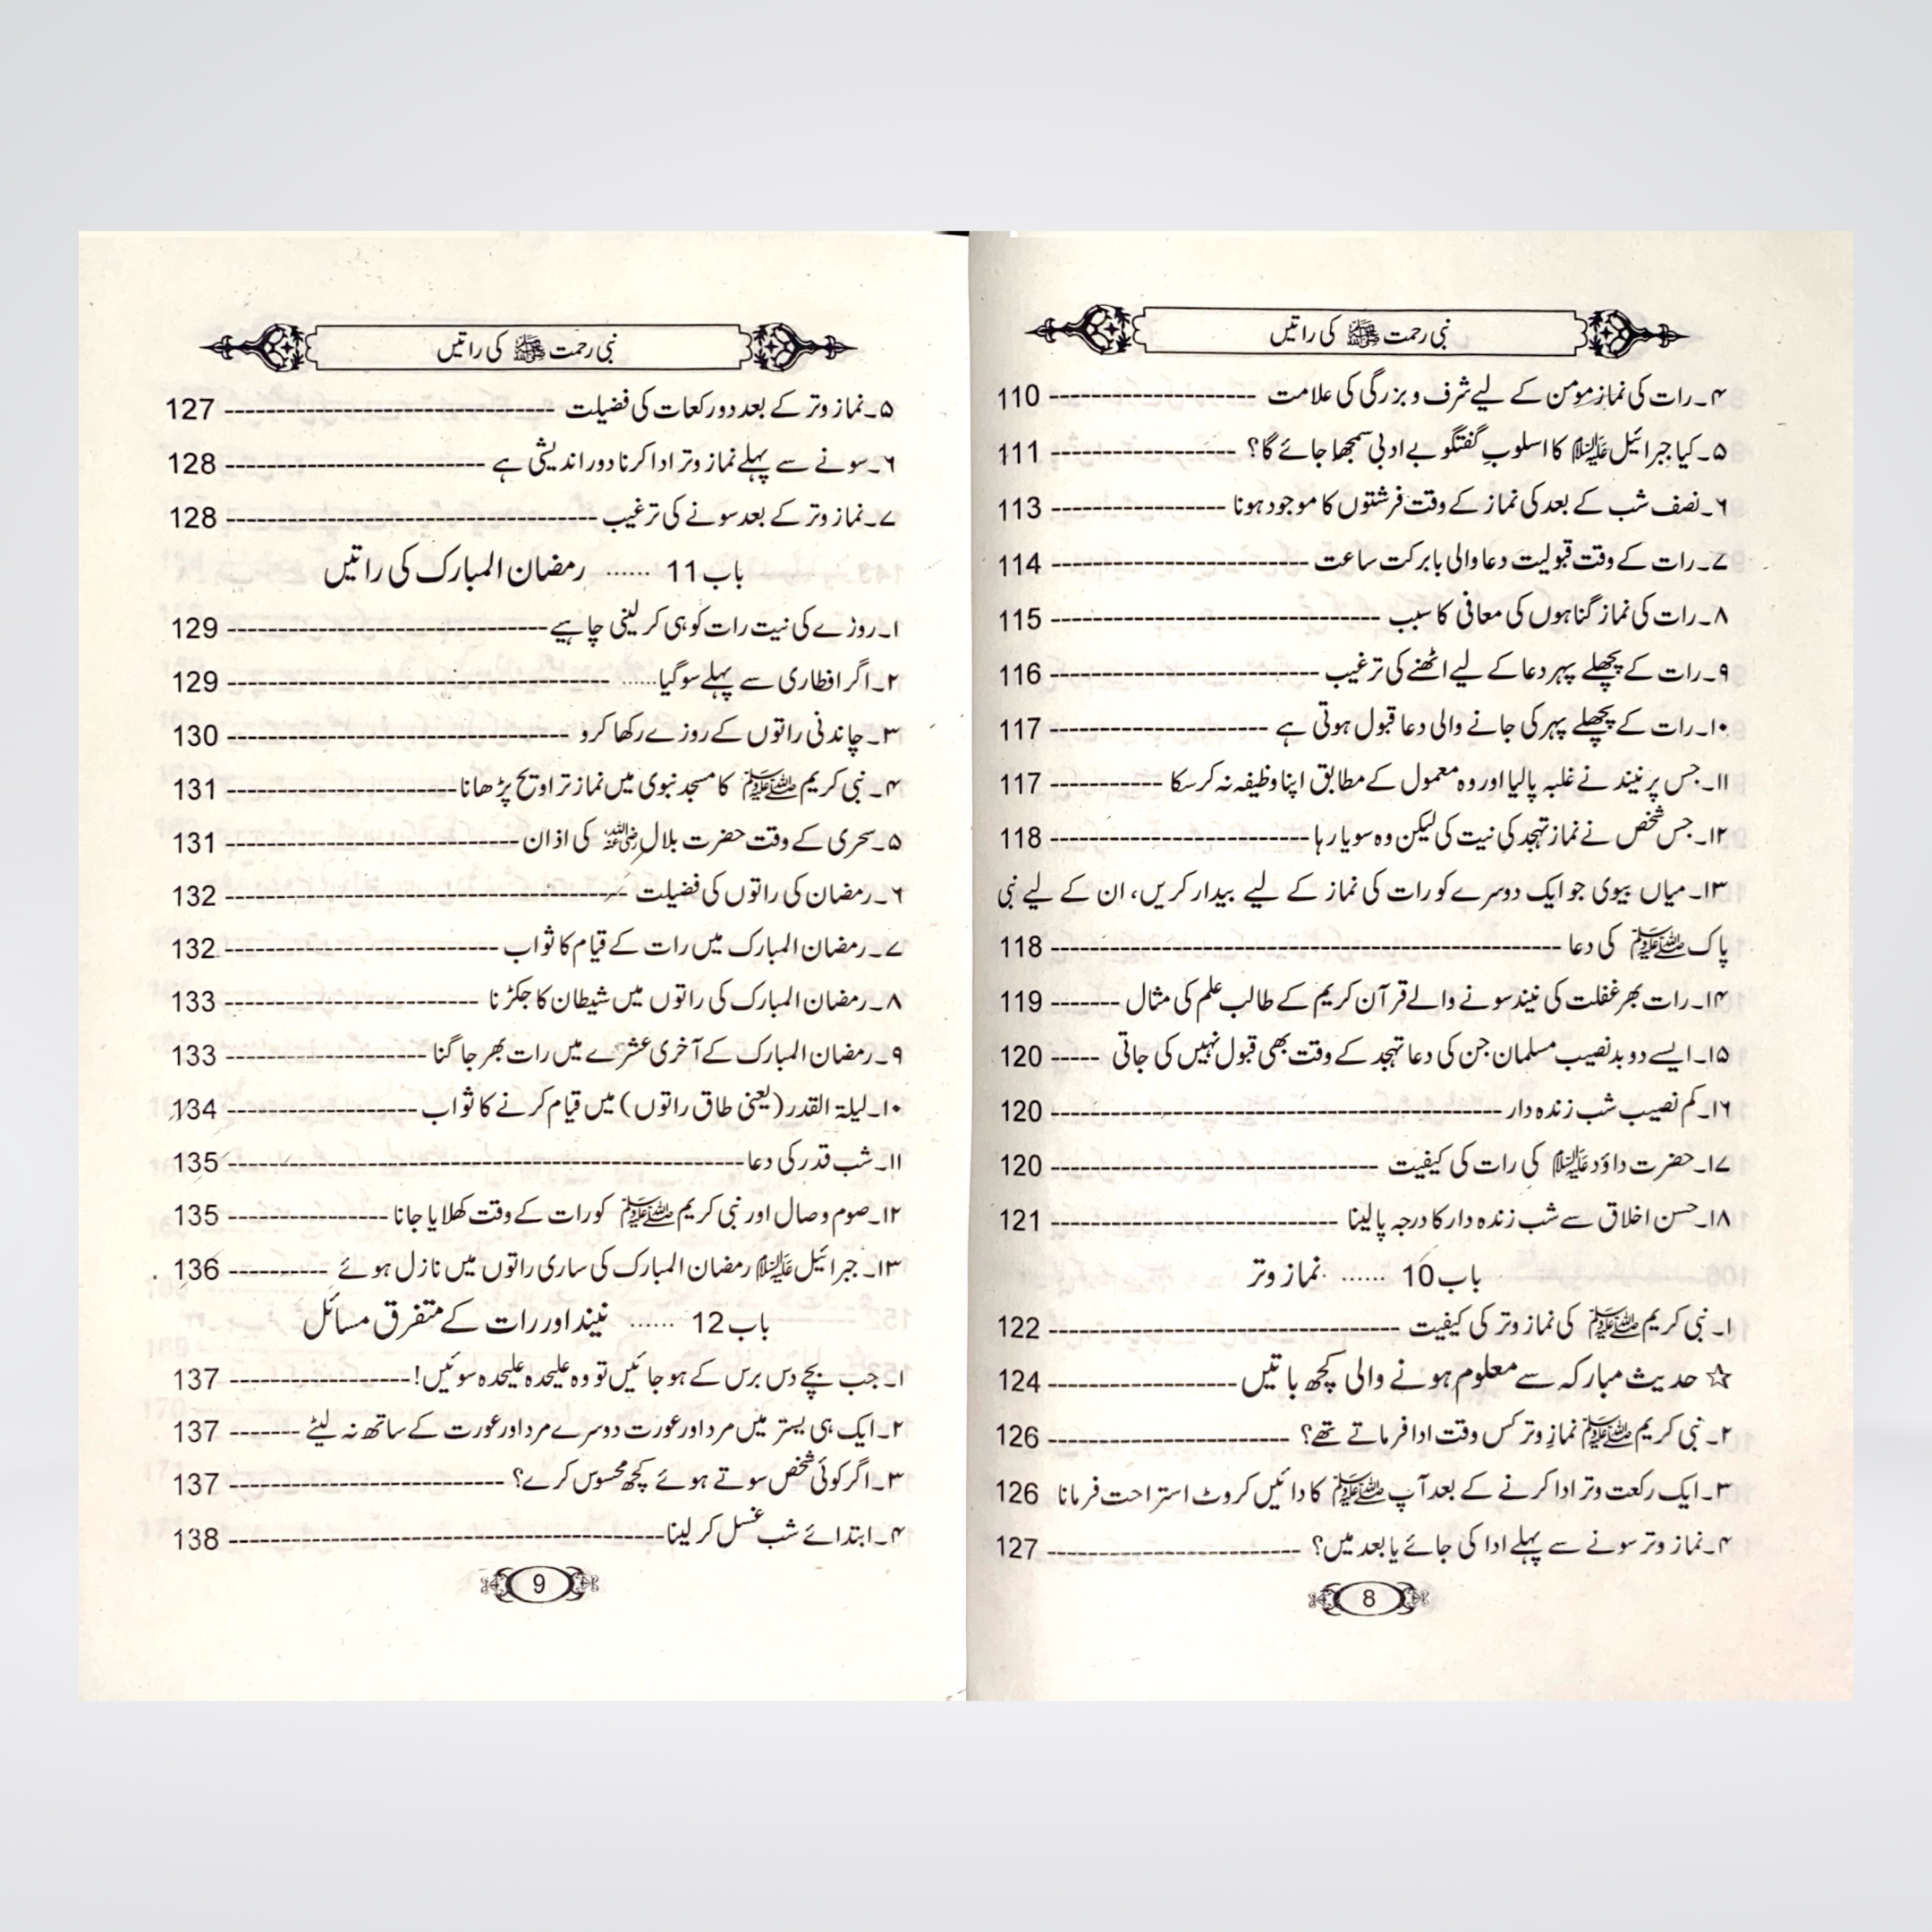 نبی رحمت ﷺ کی راتیں
۴۔رات کی نماز مومن کے لیے شرف و بزرگی کی علامت -------------------- 110
۵۔کیا جبرائیل علیہ السلام کا اسلوبِ گفتگو بے ادبی سمجھا جائے گا؟ ------------------ 111
۶۔نصف شب کے بعد کی نماز کے وقت فرشتوں کا موجود ہونا ----------------- 113
۷۔رات کے وقت قبولیت دعا والی بابرکت ساعت ------------------------- 114
۸۔رات کی نماز گناہوں کی معافی کا سبب -------------------------------- 115
۹۔رات کے پچھلے پہر دعا کے لیے اٹھنے کی ترغیب -------------------------- 116
۱۰۔رات کے پچھلے پہر کی جانے والی دعا قبول ہوتی ہے --------------------- 117
۱۱۔جس پر نیند نے غلبہ پالیا اور وہ معمول کے مطابق اپنا وظیفہ نہ کرسکا ----------- 117
۱۲۔جس شخص نے نماز تہجد کی نیت کی لیکن وہ سویا رہا ------------------------- 118
۱۳۔میاں بیوی جو ایک دوسرے کو رات کی نماز کے لیے بیدار کریں، ان کے لیے نبی
پاک ﷺ کی دعا -------------------------------------------------- 118
۱۴۔رات بھر غفلت کی نیند سونے والے قرآن کریم کے طالب علم کی مثال ------- 119
۱۵۔ایسے دو بدنصیب مسلمان جن کی دعا تہجد کے وقت بھی قبول نہیں کی جاتی ----- 120
۱۶۔کم نصیب شب زندہ دار -------------------------------------------- 120
۱۷۔حضرت داؤد علیہ السلام کی رات کی کیفیت -------------------------------- 120
۱۸۔حسن اخلاق سے شب زندہ دار کا درجہ پالینا ---------------------------- 121
باب 10 ...... نماز وتر
۱۔نبی کریم ﷺ کی نماز وتر کی کیفیت ---------------------------------- 122
☆ حدیث مبارکہ سے معلوم ہونے والی کچھ باتیں ------------------ 124
۲۔نبی کریم ﷺ نمازِ وتر کس وقت ادا فرماتے تھے؟ ----------------------- 126
۳۔ایک رکعت وتر ادا کرنے کے بعد آپ ﷺ کا دائیں کروٹ استراحت فرمانا 126
۴۔نماز وتر سونے سے پہلے ادا کی جائے یا بعد میں؟ ------------------------ 127
8
نبی رحمت ﷺ کی راتیں
۵۔نماز وتر کے بعد دو رکعات کی فضیلت -------------------------------- 127
۶۔سونے سے پہلے نماز وتر ادا کرنا دور اندیشی ہے ------------------------- 128
۷۔نماز وتر کے بعد سونے کی ترغیب ------------------------------------ 128
باب 11 ...... رمضان المبارک کی راتیں
۱۔روزے کی نیت رات کو ہی کر لینی چاہیے------------------------------- 129
۲۔اگر افطاری سے پہلے سو گیا...... ------------------------------------- 129
۳۔چاندنی راتوں کے روزے رکھا کرو --------------------------------- 130
۴۔نبی کریم ﷺ کا مسجد نبوی میں نماز تراویح پڑھانا---------------------- 131
۵۔سحری کے وقت حضرت بلال رضی اللہ عنہ کی اذان---------------------------- 131
۶۔رمضان کی راتوں کی فضیلت --------------------------------------- 132
۷۔رمضان المبارک میں رات کے قیام کا ثواب -------------------------- 132
۸۔رمضان المبارک کی راتوں میں شیطان کا جکڑنا ------------------------- 133
۹۔رمضان المبارک کے آخری عشرے میں رات بھر جاگنا ------------------- 133
۱۰۔لیلۃ القدر (یعنی طاق راتوں) میں قیام کرنے کا ثواب ------------------ 134
۱۱۔شب قدر کی دعا-------------------------------------------------- 135
۱۲۔صوم وصال اور نبی کریم ﷺ کو رات کے وقت کھلایا جانا --------------- 135
۱۳۔جبرائیل علیہ السلام رمضان المبارک کی ساری راتوں میں نازل ہوئے ---------- 136
باب 12 ...... نیند اور رات کے متفرق مسائل
۱۔جب بچے دس برس کے ہو جائیں تو وہ علیحدہ علیحدہ سوئیں!------------------ 137
۲۔ایک ہی بستر میں مرد اور عورت دوسرے مرد اور عورت کے ساتھ نہ لیٹے ------- 137
۳۔اگر کوئی شخص سوتے ہوئے کچھ محسوس کرے؟ -------------------------- 137
۴۔ابتدائے شب غسل کر لینا------------------------------------------ 138
9